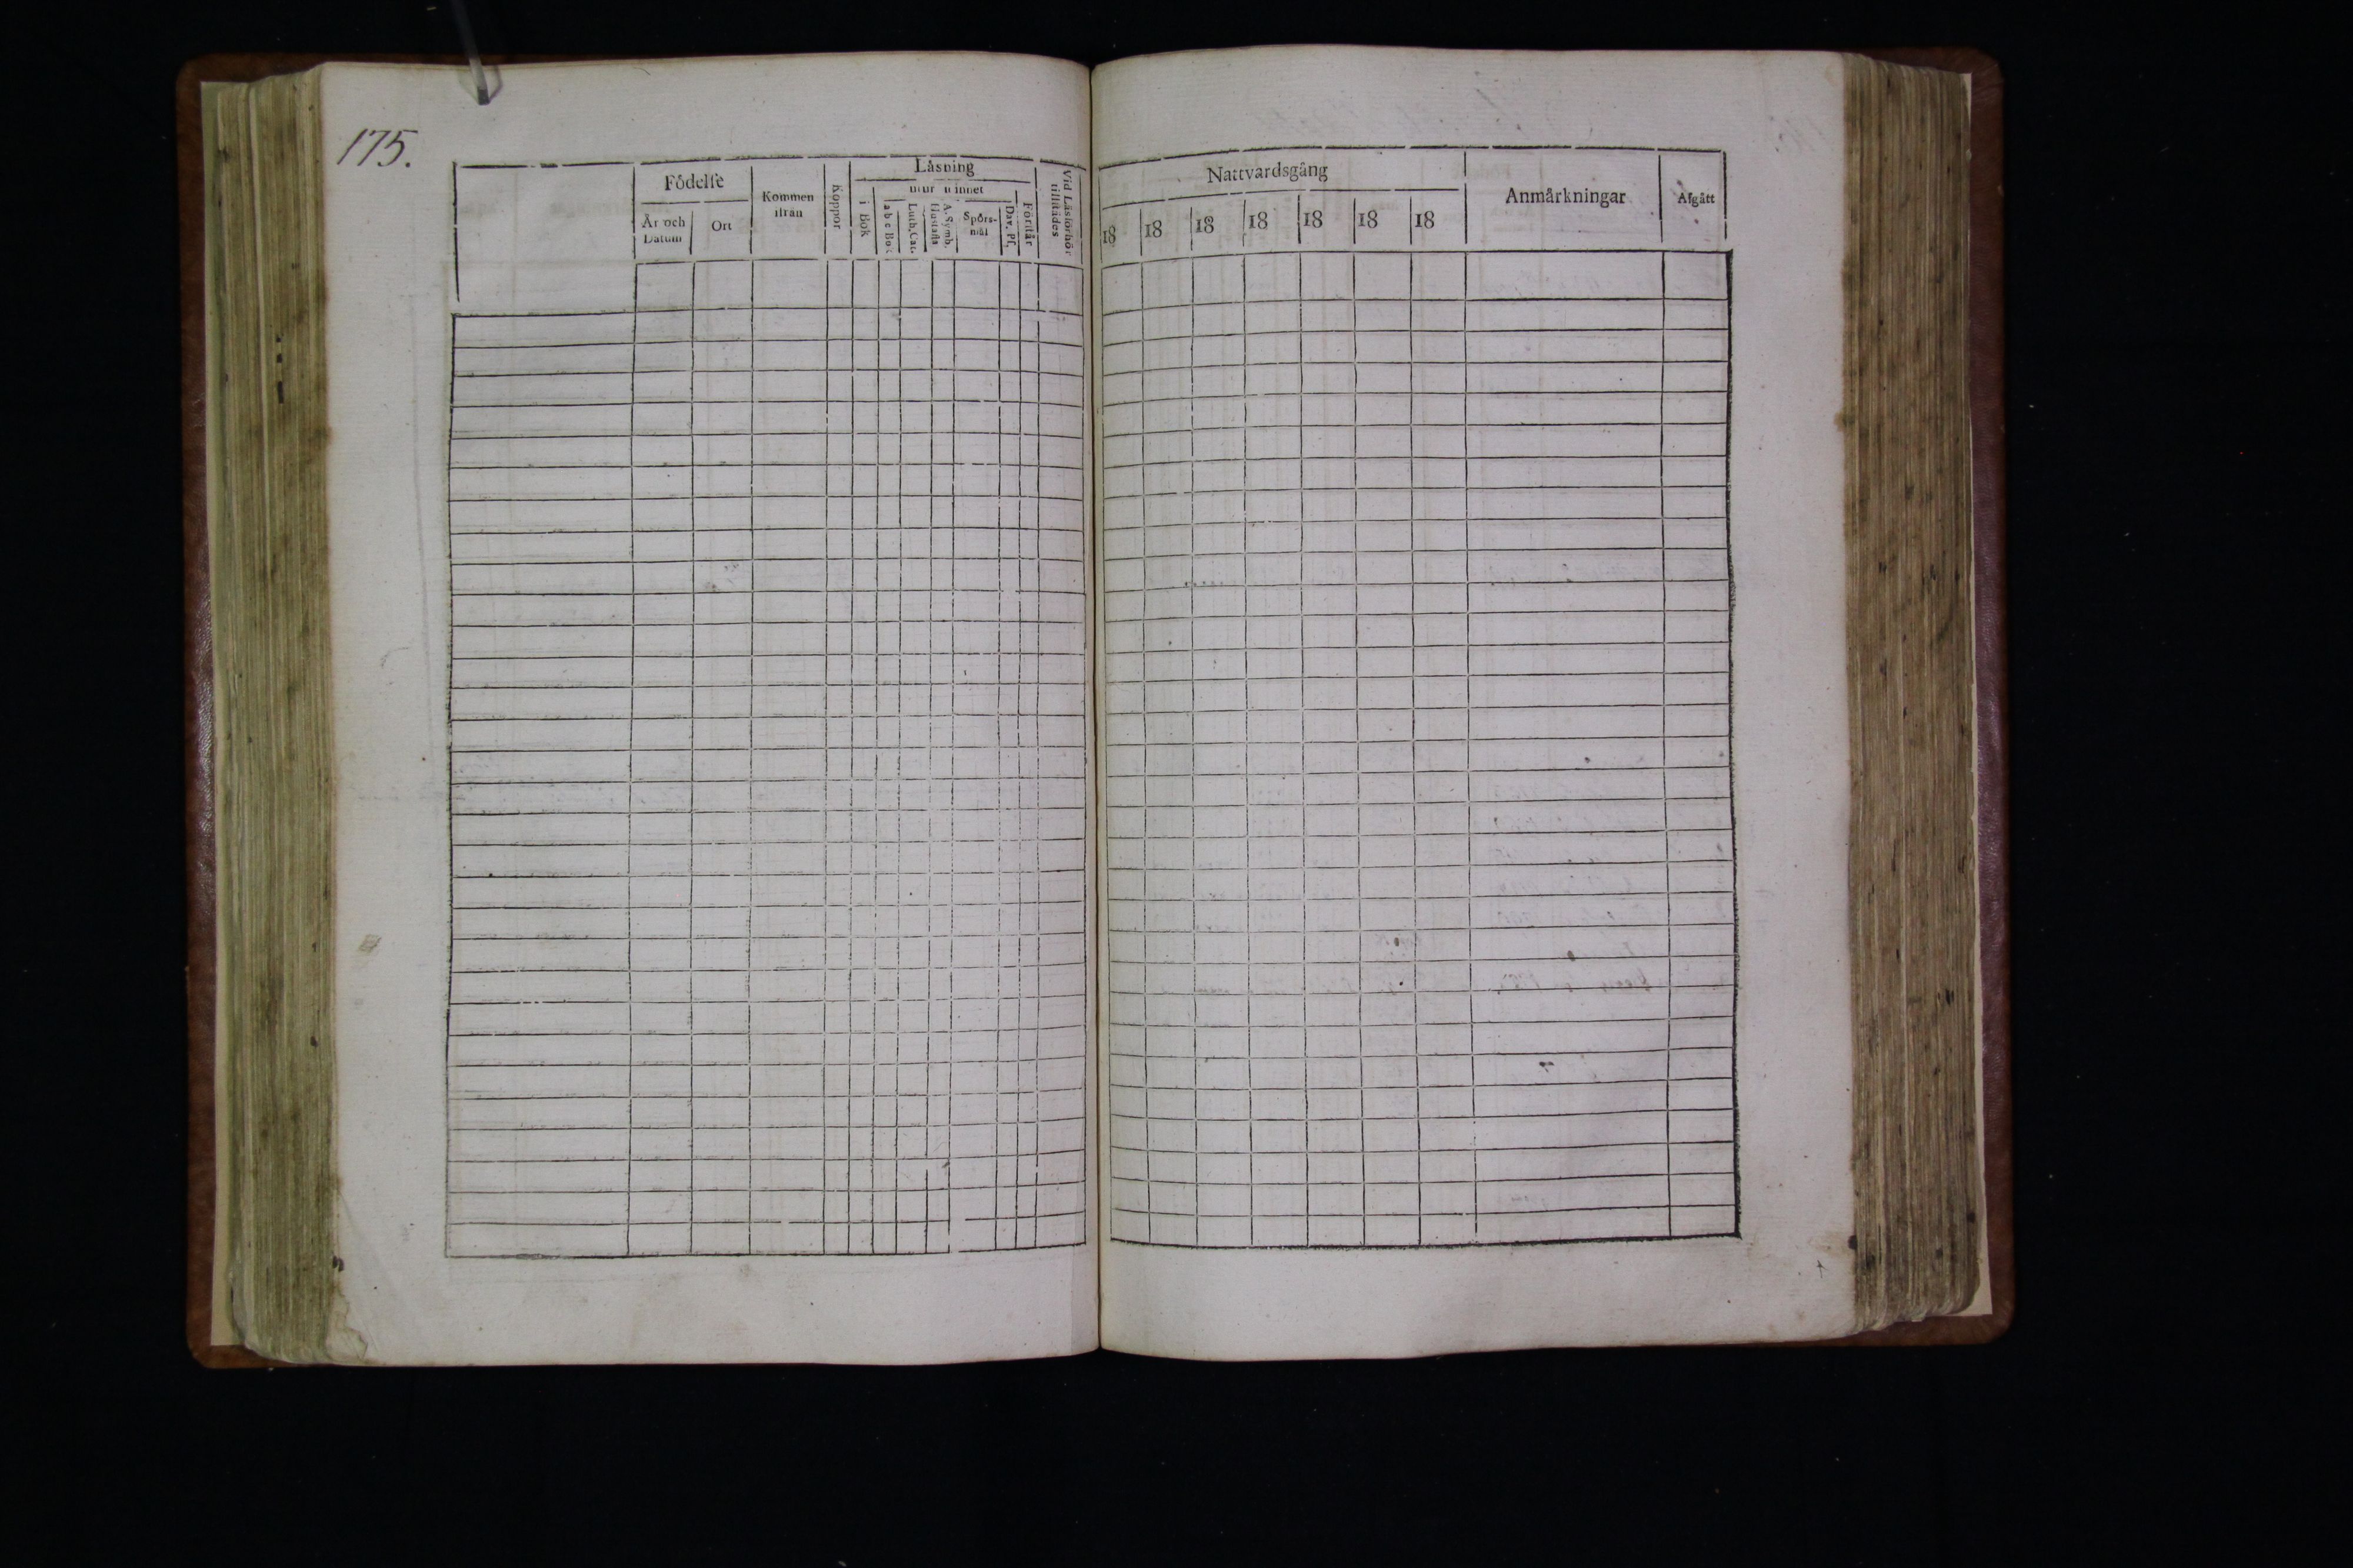 175.
Födelse
År och
Datum
Ort
Kommen
ifrån
Koppor
Läsning
utur minnet
i Bok
a b c Bok
Luth. Cat.
Hustafla
A. Symb.
Spörs-
mål
Dav. Ps.
Förstår
Vid Läsförhör
tillstädes
Nattvardsgång
18 18 18 18 18 18 18
Anmårkningar
Afgått